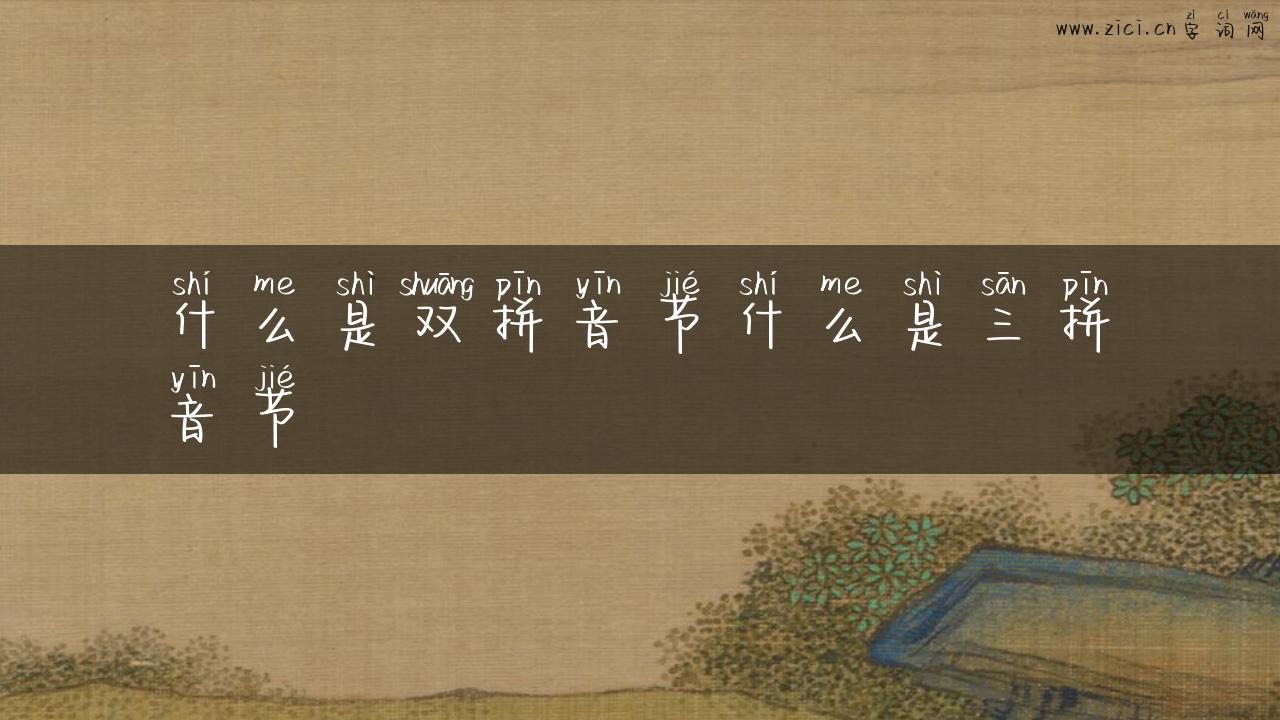 zì cí wǎng
www.zici.cn 字词网
shí me shì shuāng pīn yīn jié shí me shì sān pīn
什么是双拼音节什么是三拼
yīn jié
音节